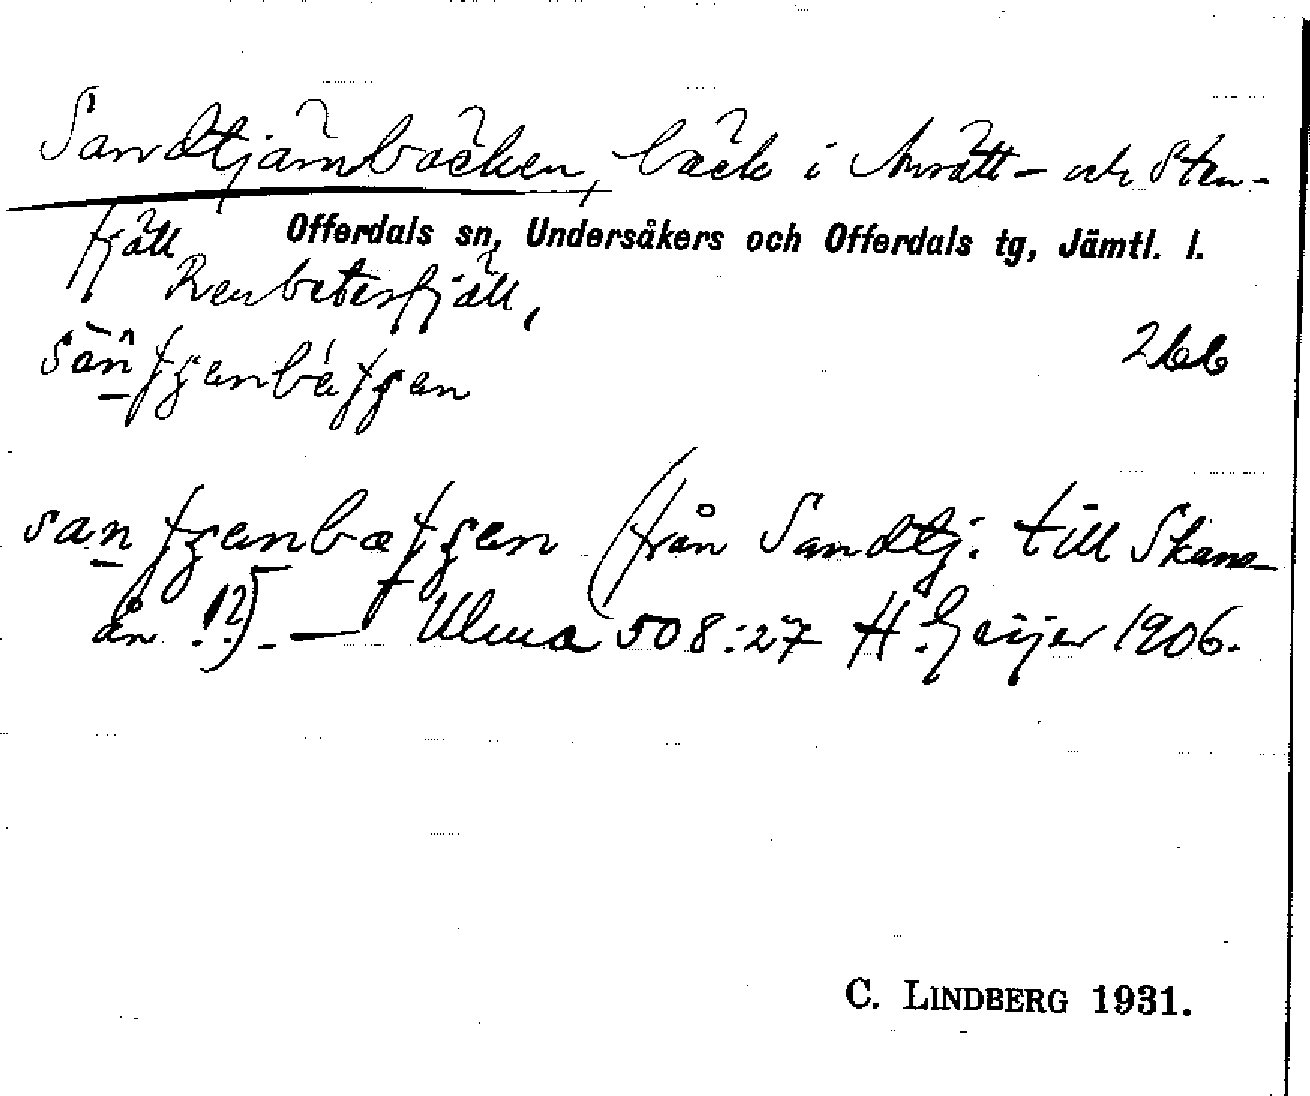 Sandtjärnbäcken, bäck i Anrätt- och Sten-
fjäll
Offerdals sn, Undersåkers och Offerdals tg, Jämtl. l.
Renbetesfjäll,
266
(från Sandtj. till Skans-
ån !?). — Ulma 508:27 H. Geijer 1906.
C. LINDBERG 1931.